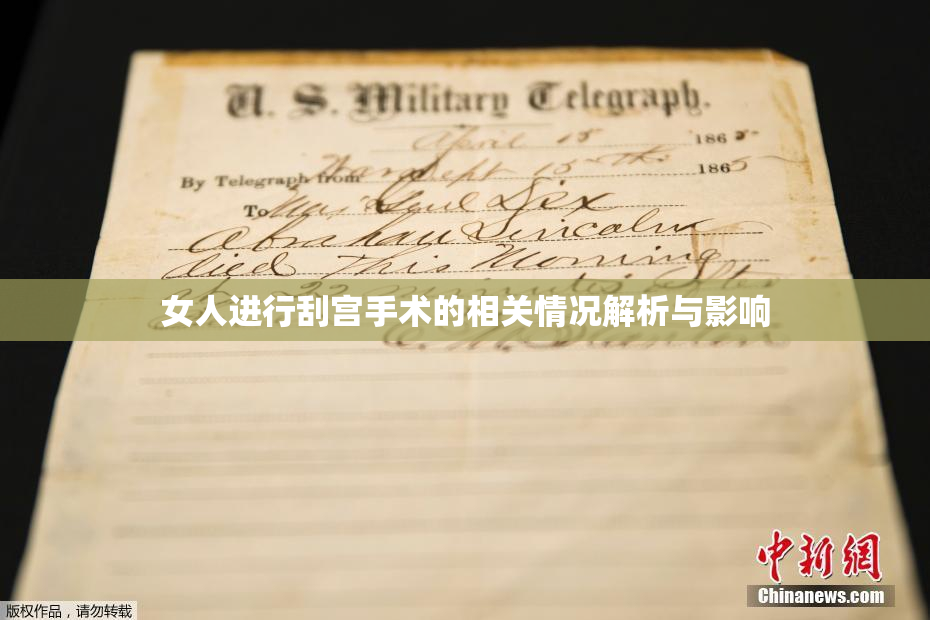 U. S. Military Telegraph.
April 15 1865
By Telegraph from War Dept 15th 1865
To Maj Genl Dix
Abraham Lincoln
died This Morning
at 22 minutes after
女人进行刮宫手术的相关情况解析与影响
E. M. Stanton
中新網
Chinanews.com
版权作品，请勿转载